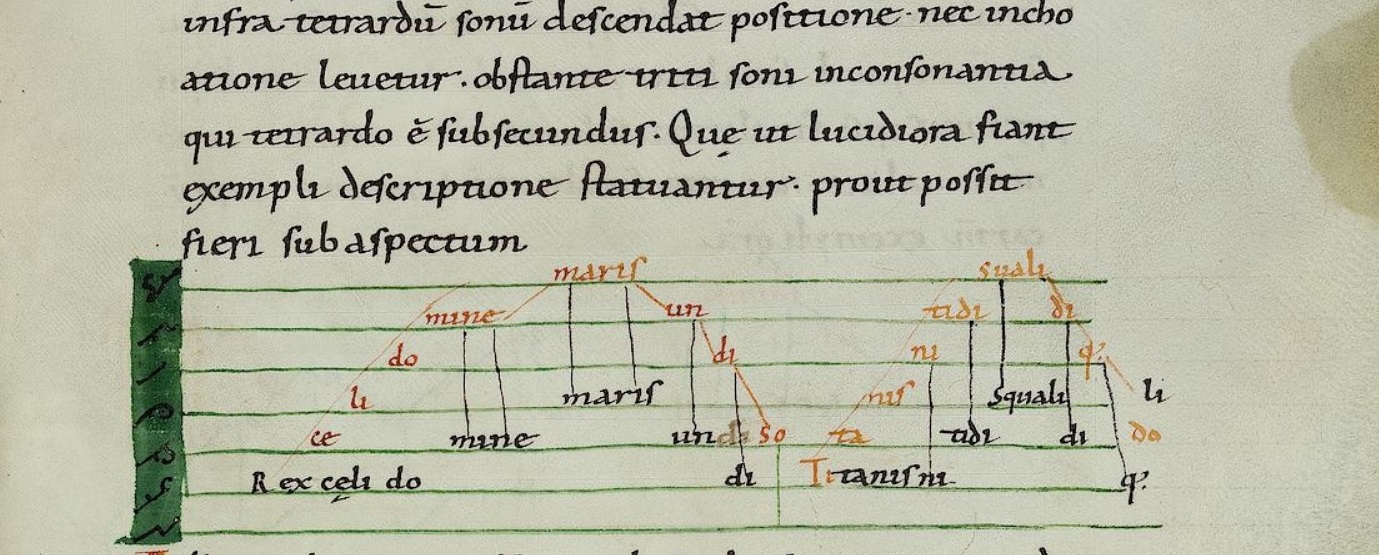 infra tetrardū sonū descendat positione · nec incho
atione leuetur. obstante triti soni inconsonantia
qui tetrardo ē subsecundus. Quę ut lucidiora fiant
exempli descriptione statuantur. prout possit
fieri sub aspectum
maris suali
mine un tidi di
do di ni q:
li maris nis squali li
ce mine un so ta tidi di do
Rex cęli do di Titanis ni q: